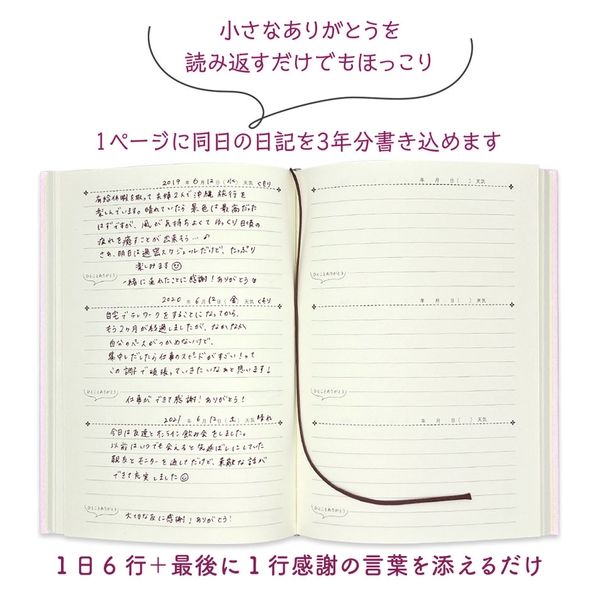 小さなありがとうを
読み返すだけでもほっこり
1ページに同日の日記を3年分書き込めます
2019 年 6 月 12 日 (水) 天気 くもり
有給休暇を取って夫婦2人で沖縄旅行を
楽しんでいます。晴れていたら景色は最高だった
はずですが、風が気持ちよくてゆっくり日頃の
疲れを癒すことが出来そう…♪
さぁ、明日は過密スケジュールだけど、たっぷり
楽しみます
ひとことありがとう
一緒に来れたことに感謝!ありがとう
2020 年 6 月 12 日 (金) 天気 くもり
自宅でテレワークをすることになってから、
もう2ヶ月が経過しましたが、なかなか
自分のペースがつかめないけど、
集中しだしたら仕事のスピードがすごい!って
この調子で頑張っていきたいなぁと思います!
ひとことありがとう
仕事ができて感謝!ありがとう!
2021 年 6 月 12 日 (土) 天気 晴れ
今日は友達とオンライン飲み会をしました。
以前はいつでも会えると先延ばしにしていた
親友とモニターを通してだけど、素敵な話が
できて充実しました
ひとことありがとう
大切な友に感謝!ありがとう!
年 月 日 ( ) 天気
ひとことありがとう
年 月 日 ( ) 天気
ひとことありがとう
年 月 日 ( ) 天気
ひとことありがとう
1日6行+最後に1行感謝の言葉を添えるだけ